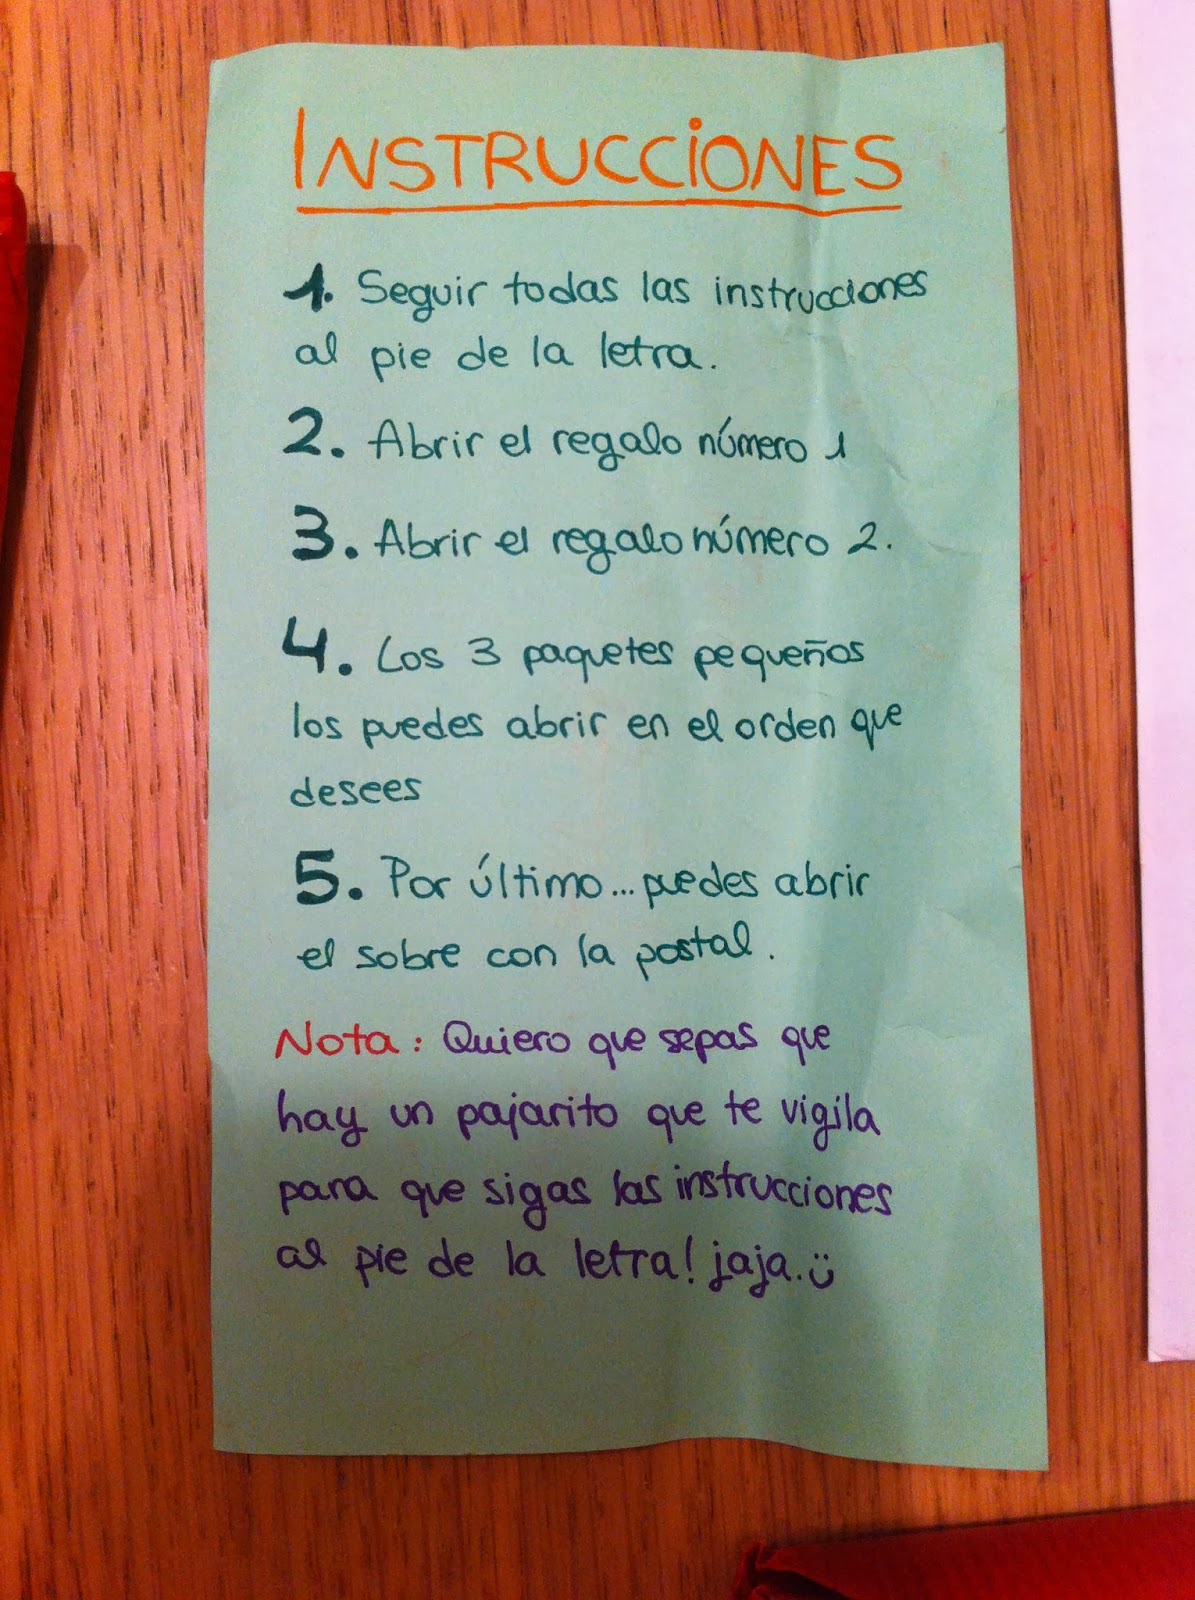 INSTRUCCIONES
1. Seguir todas las instrucciones
al pie de la letra.
2. Abrir el regalo número 1
3. Abrir el regalo número 2.
4. Los 3 paquetes pequeños
los puedes abrir en el orden que
desees
5. Por último... puedes abrir
el sobre con la postal.
Nota: Quiero que sepas que
hay un pajarito que te vigila
para que sigas las instrucciones
al pie de la letra! jaja. Ü